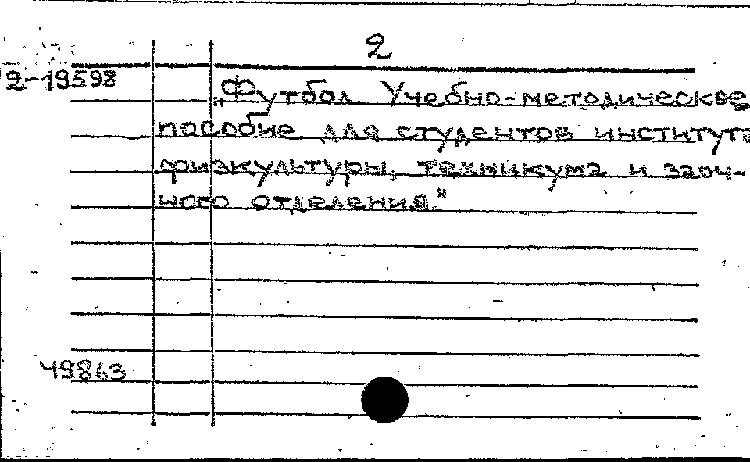 2
2-19598
„Футбол Учебно-методическое
пособие для студентов института
физкультуры, техникума и заоч-
ного отделения."
49863